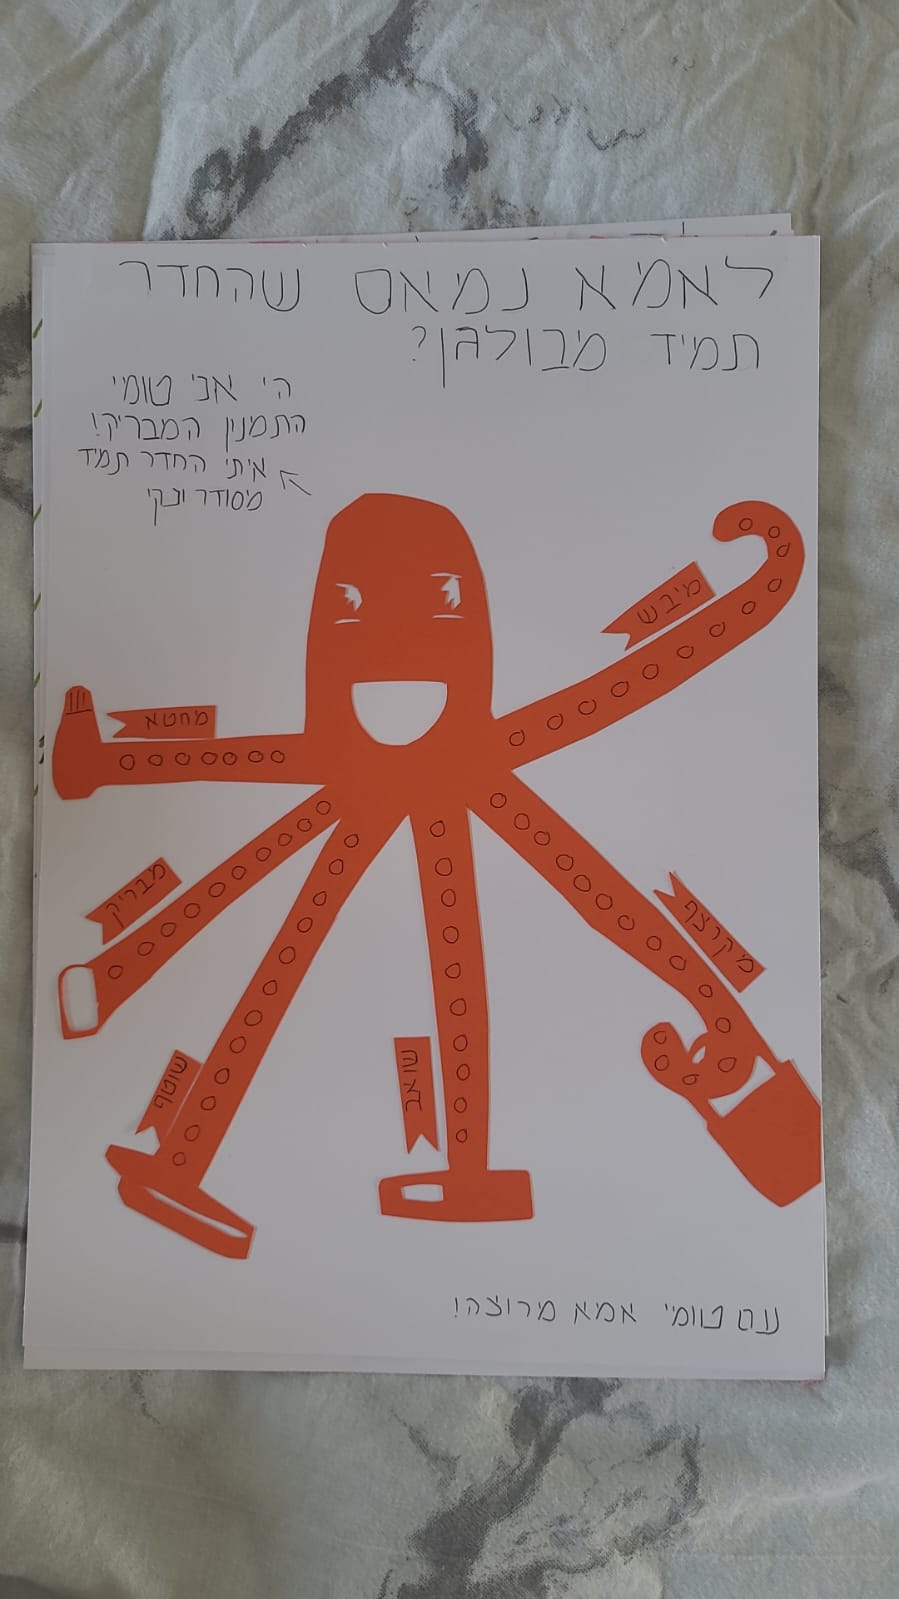 לאמא נמאס שהחדר
תמיד מבולגן?
הי אני טומי
התמנין המבריק!
איתי החדר תמיד
מסודר ונקי
מיבש
מחטא
מבריק
שוטף
שואב
מקרצף
עם טומי אמא מרוצה!